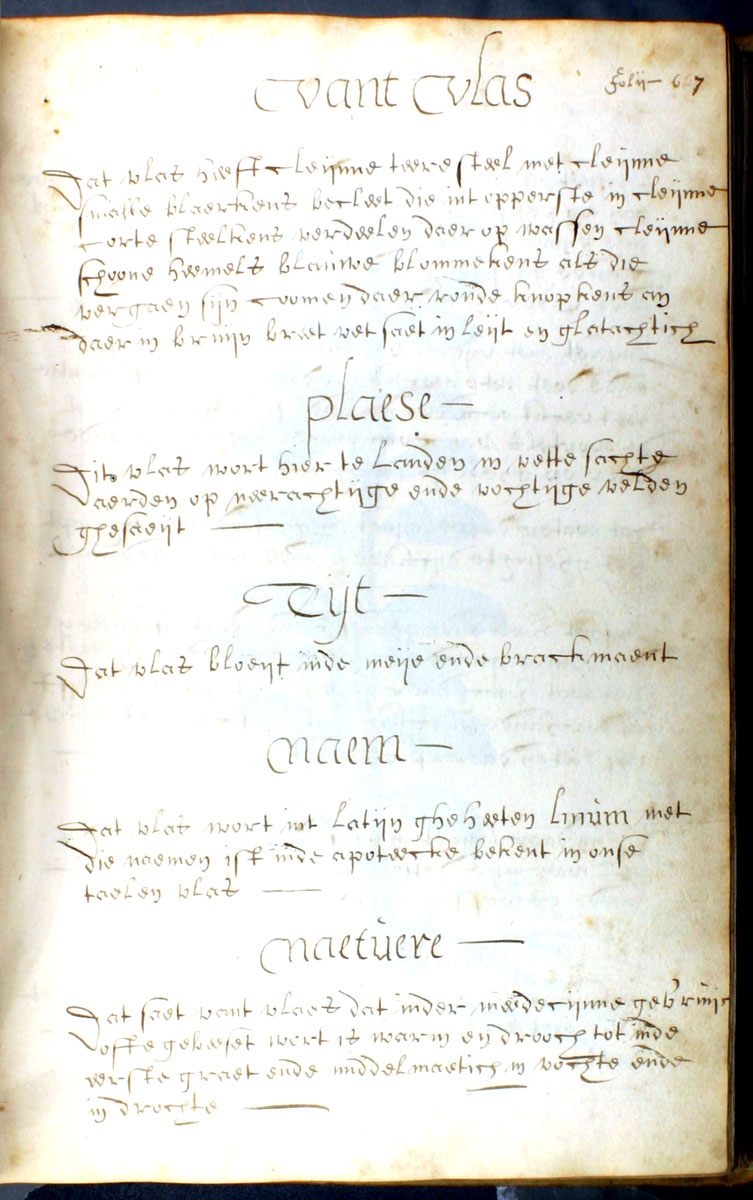 Vant Vlas
Folij 667
Dat vlas heeft cleijnne teere steel met cleijnne
smalle blaerkens becleet die int opperste in cleijnne
corte steelkens verdeelen daer op wassen cleijnne
schoone heemels blauwe blommekens als die
vergaen sijn coomen daer ronde knopkens an
daer in bruijn breet vet saet in leijt en glatachtich
plaese
Dit vlas wort hier te landen in vette sachte
aerden op neerachtijge ende vochtijge velden
ghesaeijt
Tijt
Dat vlas bloeijt inde meije ende brackmaent
Naem
Dat vlas wort int latijn gheheeten linum met
die naemen ist inde apoteecke bekent in onse
taelen vlas
Naetuere
Dat saet vant vlaes dat inder meedecijnne gebruijc
offe gebeeset wort is warm en drooch tot inde
eerste graet ende middelmaetich in vochte ende
in drochte